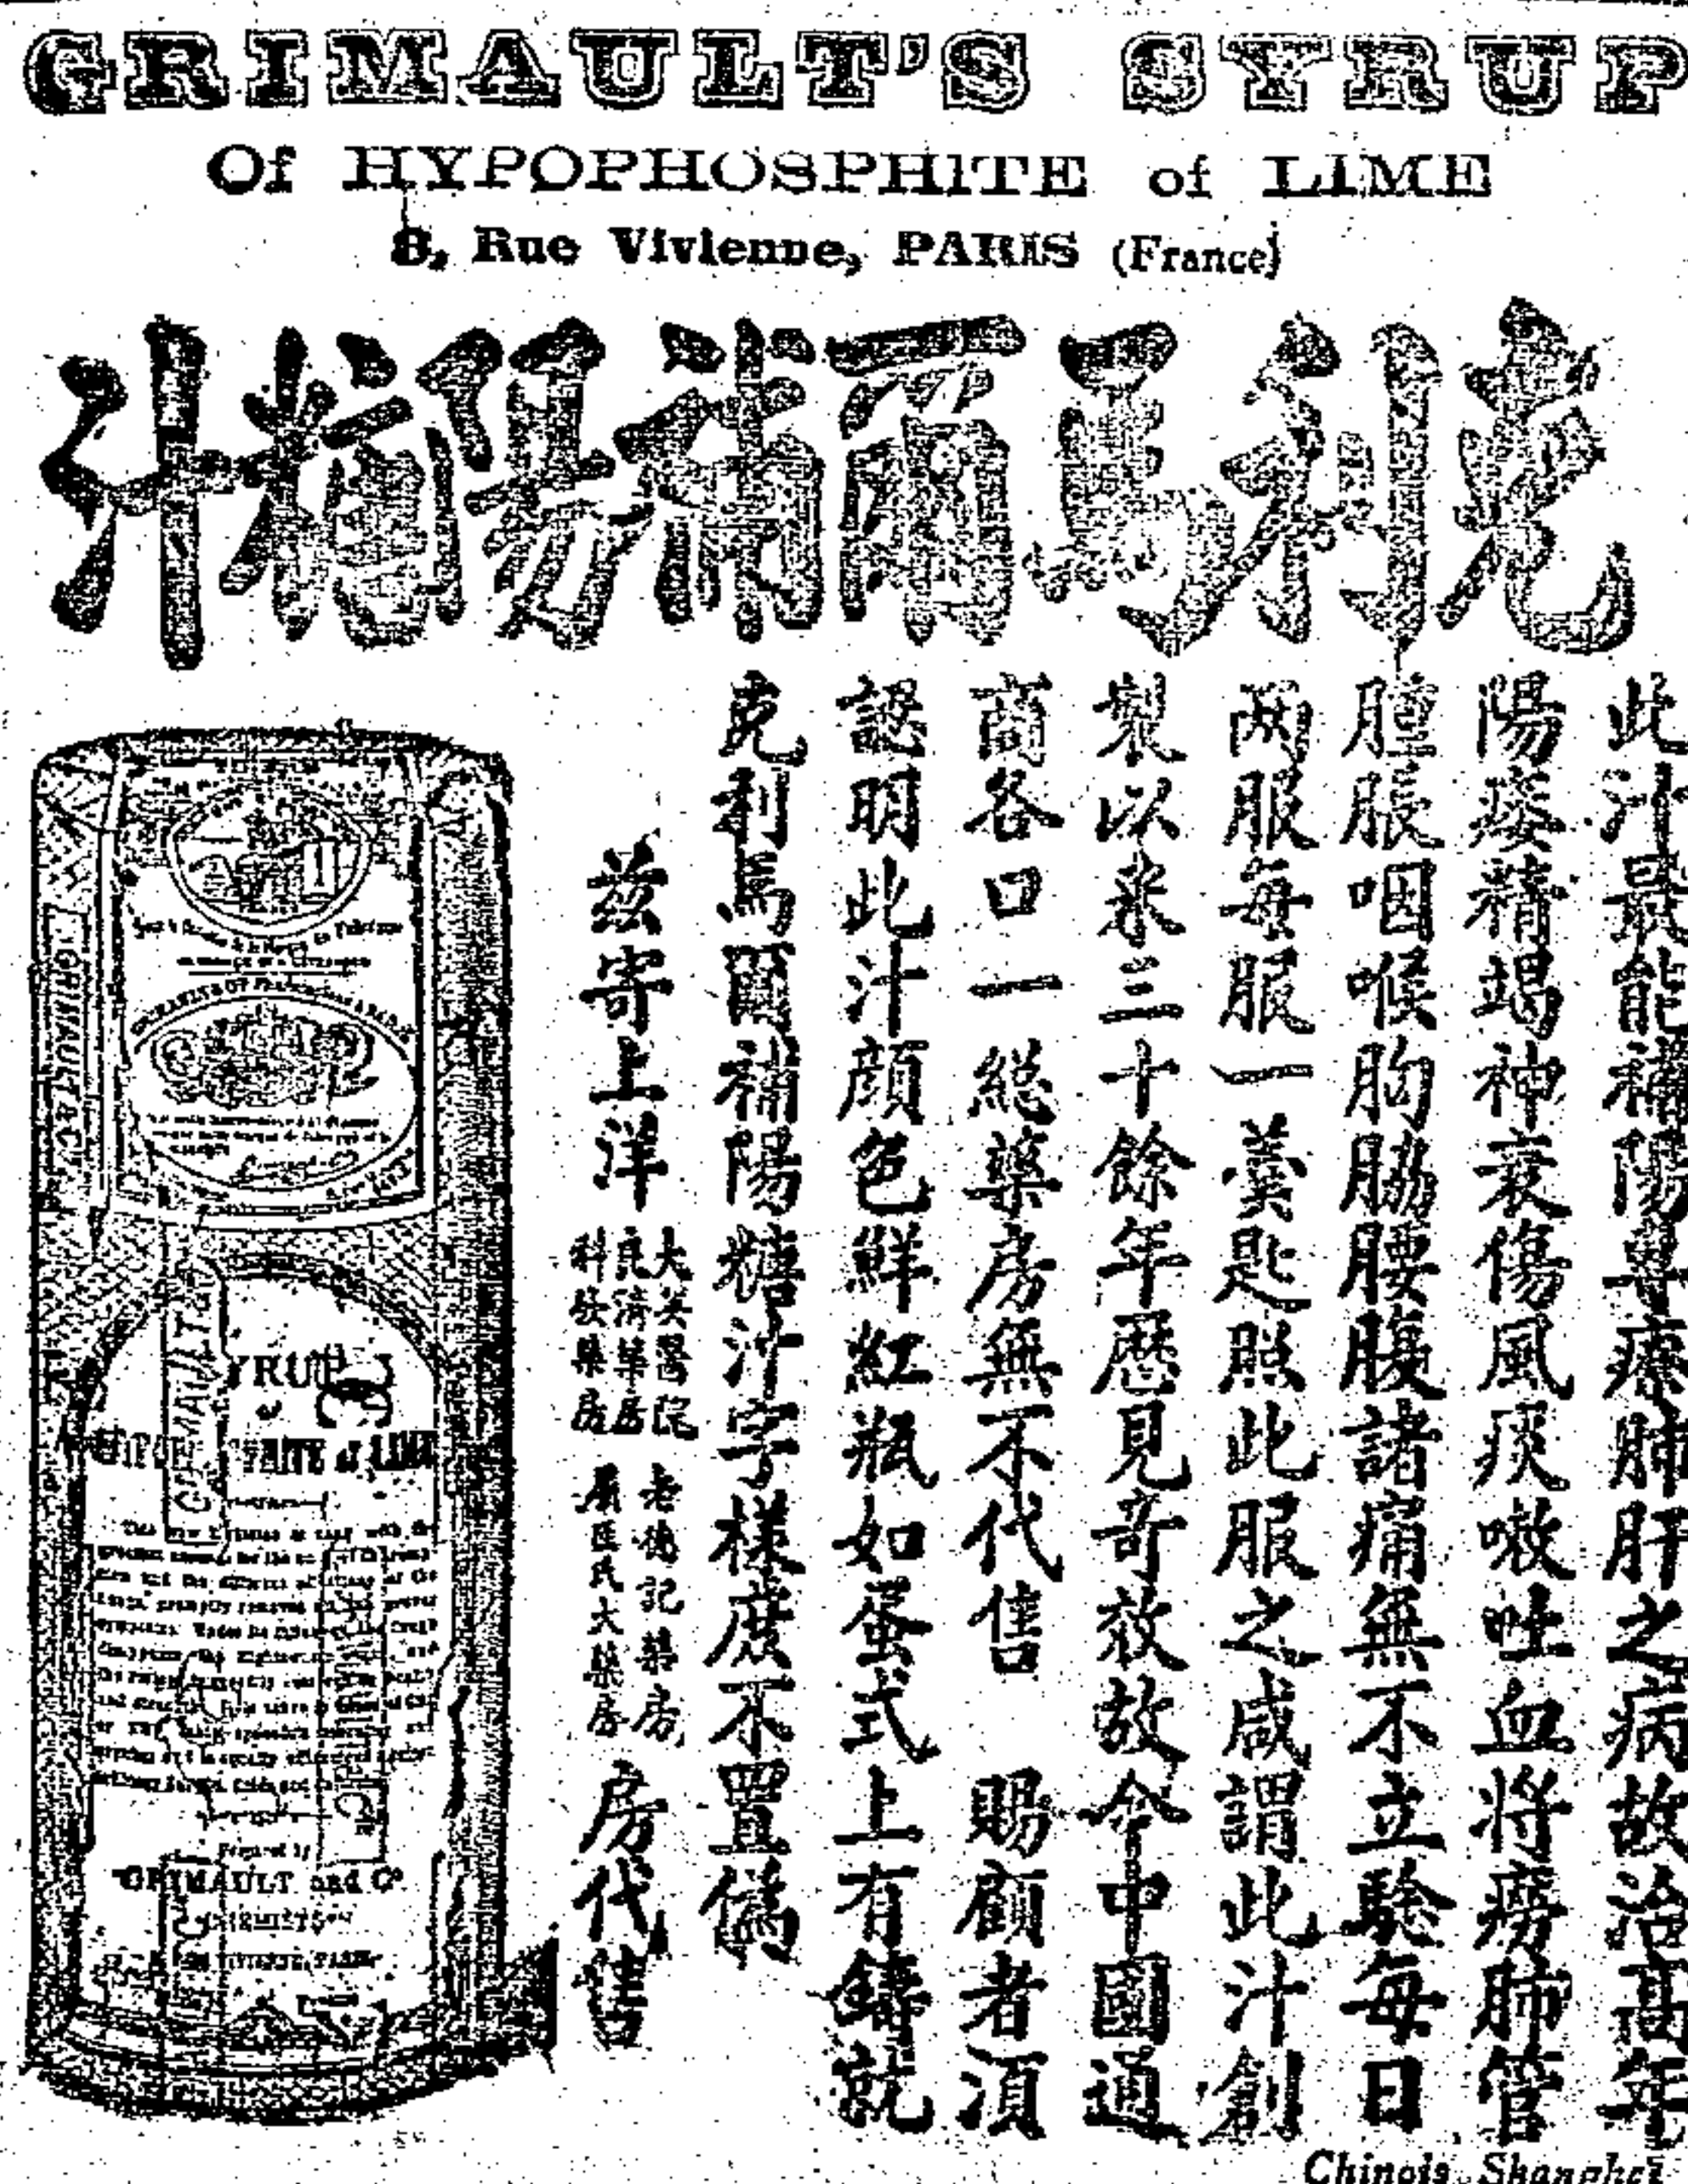 GRIMAULT'S SYRUP
Of HYPOPHOSPHITE of LIME
8, Rue Vivienne, PARIS (France)
克利馬爾補陽糖汁
此汁最能補陽專療肺肝之病故治高年
陽痿精竭神衰傷風痰嗽吐血將癆肺管
膻脹咽喉胸脇腰腹諸痛無不立驗每日
兩服每服一羹匙照此服之咸謂此汁創
製以來三十餘年歷見奇效故今中國通
商各口一總藥房無不代售 賜顧者須
認明此汁顏色鮮紅瓶如蛋式上有鑄就
克利馬爾補陽糖汁字樣庶不置僞
茲寄上洋 大英醫院 良濟藥房 科發藥房 老德記藥房 屈臣氏大藥房 房代售
GRIMAULT & Co
GRIMAULT
SYRUP
of
HYPOPHOSPHITE of LIME
Prepared by
GRIMAULT and Co
Chinois, Shanghai